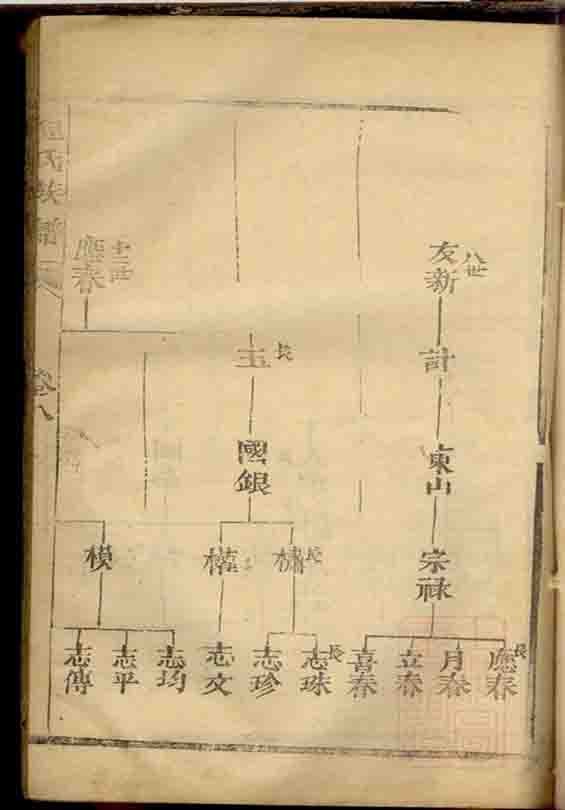 八世
友新
計
東山
宗祿
長
應春
月春
立春
喜春
十二世
應春
長
玉
國銀
長
權
模
長
志珠
志珍
志文
志均
志平
志傳
氏族譜
卷八